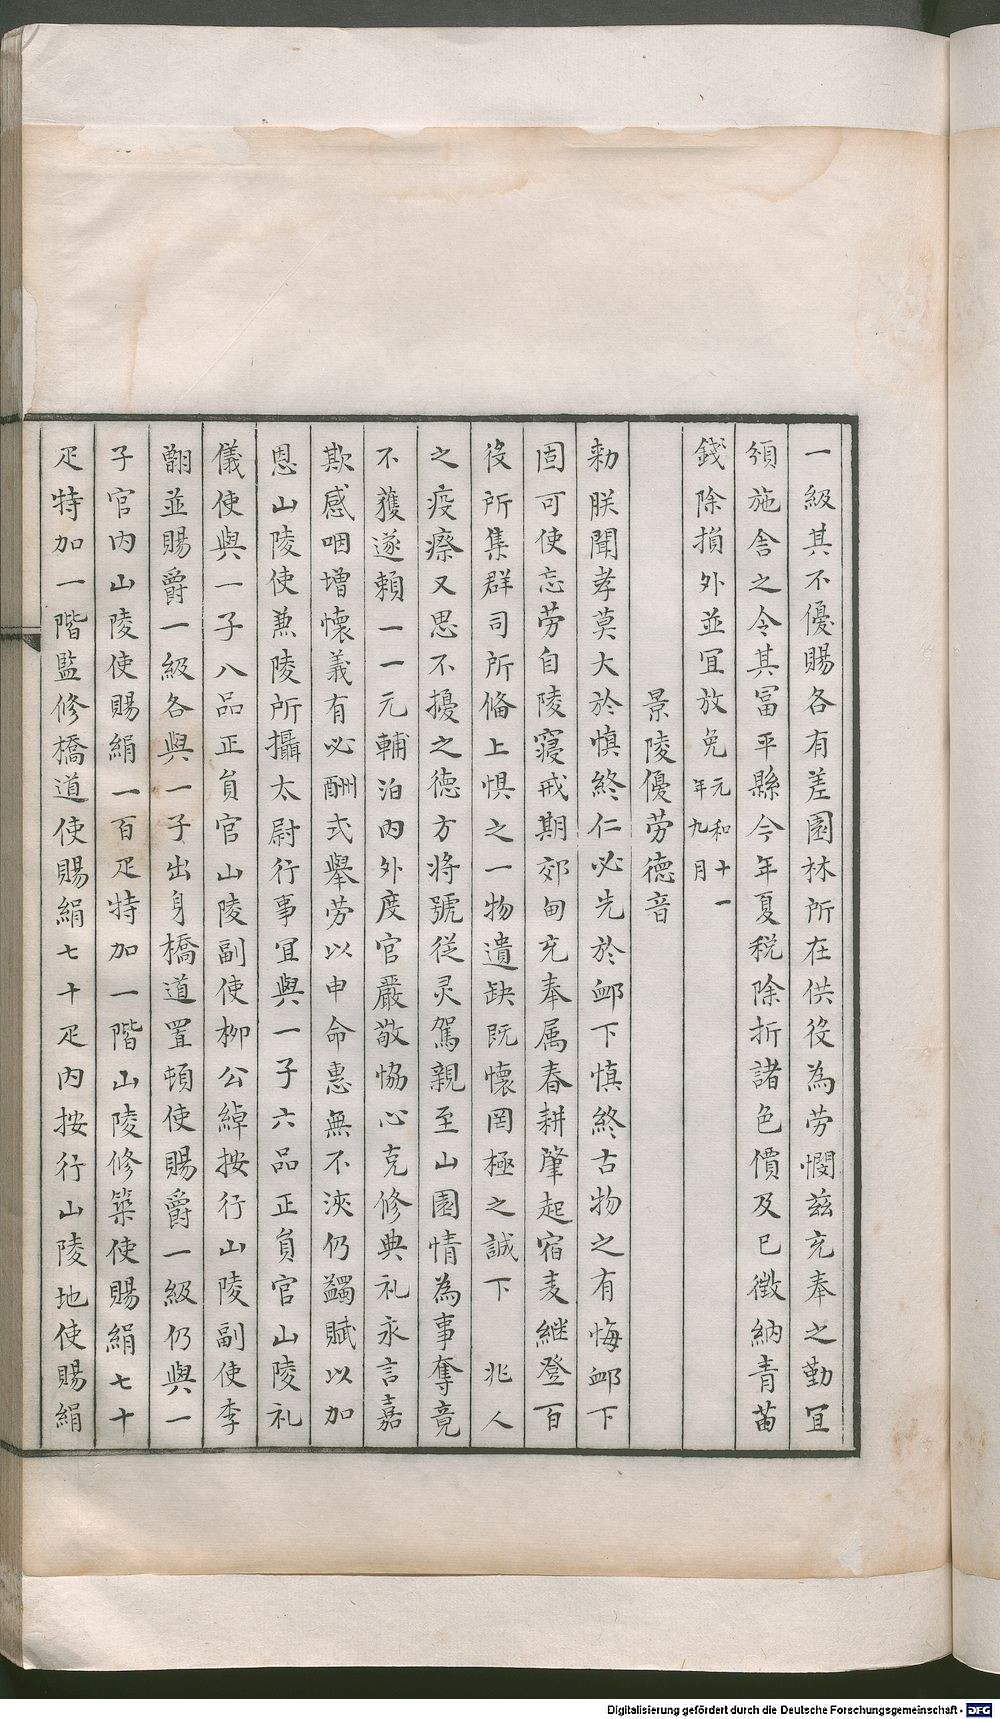 一級其不優賜各有差園林所在供役為劳憫茲充奉之勤冝
須施舍之令其富平縣今年夏税除折諸色價及已徵納青苗
錢除損外並冝放免元和十一年九月
景陵優劳德音
勑朕聞孝莫大於慎終仁必先於䘏下慎終古物之有悔䘏下
固可使忘劳自陵寢戒期郊甸充奉属春耕肇起宿麦継登百
役所集群司所俻上惧之一物遺缺既懷罔極之誠下 兆人
之疫瘵又思不擾之德方将號従灵駕親至山園情為事奪竟
不獲遂頼一一元輔泊內外度官嚴敬恊心克修典礼永言嘉
欺感咽增懷義有必酬式舉劳以申命惠無不浹仍蠲賦以加
恩山陵使兼陵所攝太尉行事冝與一子六品正負官山陵礼
儀使與一子八品正負官山陵副使柳公綽按行山陵副使李
翺並賜爵一級各與一子出身橋道置頓使賜爵一級仍與一
子官內山陵使賜絹一百疋特加一階山陵修築使賜絹七十
疋特加一階監修橋道使賜絹七十疋內按行山陵地使賜絹
Digitalisierung gefördert durch die Deutsche Forschungsgemeinschaft - DFG